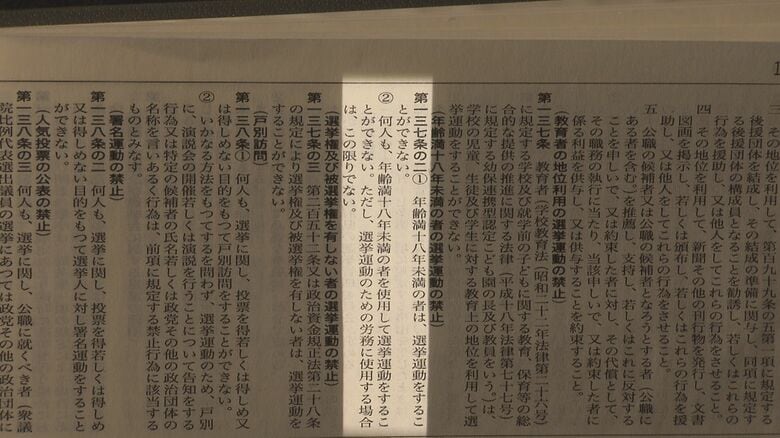 後援団体を結成し、その結成の準備に関与し、同項に規定する後援団体の構成員となることを勧誘し、若しくはこれらの行為を援助し、又は他人をしてこれらの行為をさせること。
四 その地位を利用して、新聞その他の刊行物を発行し、文書図画を掲示し、若しくは頒布し、若しくはこれらの行為を援助し、又は他人をしてこれらの行為をさせること。
五 公職の候補者又は公職の候補者となろうとする者(公職にある者を含む。)を推薦し、支持し、若しくはこれに反対することを申しいで、又は約束した者に対し、その代償として、その職務の執行に当たり、当該申しいで、又は約束した者に係る利益を供与し、又は供与することを約束すること。
(教育者の地位利用の選挙運動の禁止)
第一三七条 教育者(学校教育法(昭和二十二年法律第二十六号)
に規定する学校及び就学前の子どもに関する教育、保育等の総
合的な提供の推進に関する法律(平成十八年法律第七十七号)
に規定する幼保連携型認定こども園の長及び教員をいう。)は、
学校の児童、生徒及び学生に対する教育上の地位を利用して選
挙運動をすることができない。
(年齢満十八年未満の者の選挙運動の禁止)
第一三七条の二① 年齢満十八年未満の者は、選挙運動をするこ
とができない。
② 何人も、年齢満十八年未満の者を使用して選挙運動をするこ
とができない。ただし、選挙運動のための労務に使用する場合
は、この限りでない。
(選挙権及び被選挙権を有しない者の選挙運動の禁止)
第一三七条の三 第二百五十二条又は政治資金規正法第二十八条
の規定により選挙権及び被選挙権を有しない者は、選挙運動を
することができない。
(戸別訪問)
第一三八条① 何人も、選挙に関し、投票を得若しくは得しめ又
は得しめない目的をもつて戸別訪問をすることができない。
② いかなる方法をもつてするを問わず、選挙運動のため、戸別
に、演説会の開催若しくは演説を行うことについて告知をする
行為又は特定の候補者の氏名若しくは政党その他の政治団体の
名称を言いあるく行為は、前項に規定する禁止行為に該当する
ものとみなす。
(署名運動の禁止)
第一三八条の二 何人も、選挙に関し、投票を得若しくは得しめ
又は得しめない目的をもつて選挙人に対し署名運動をすること
ができない。
(人気投票の公表の禁止)
第一三八条の三 何人も、選挙に関し、公職に就くべき者(衆議
院比例代表選出議員の選挙にあつては政党その他の政治団体に